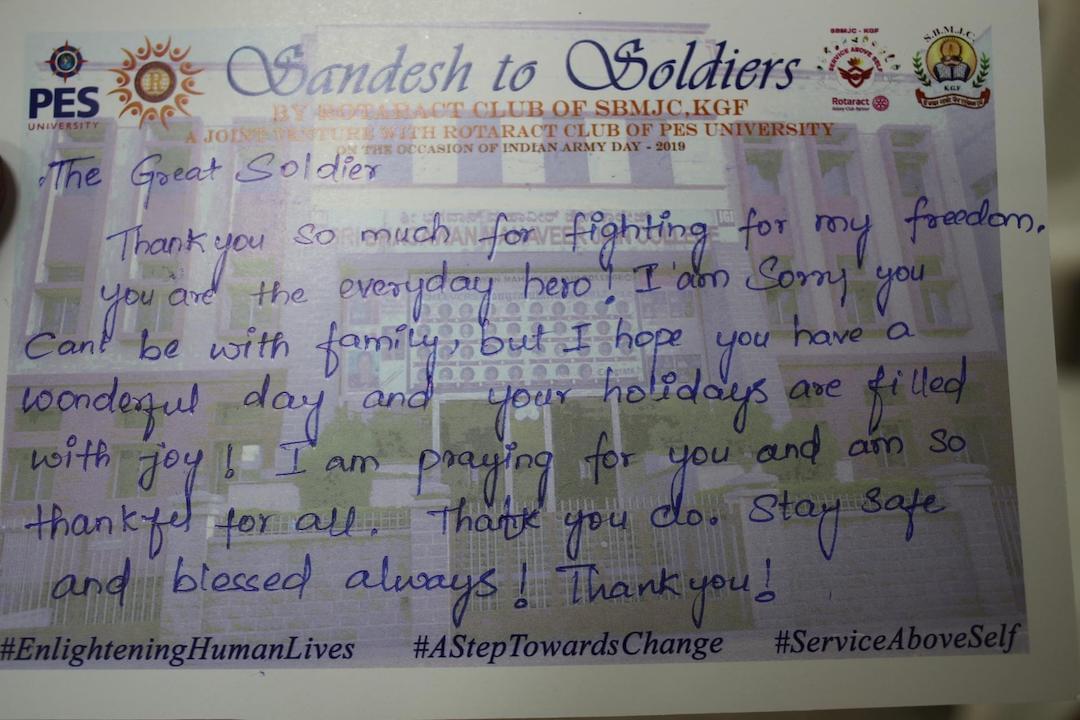 PES
UNIVERSITY
R
Sandesh to Soldiers
SBMJC - KGF
SERVICE ABOVE SELF
Rotaract
S.B.M.J.C.
K.G.F.
BY ROTARACT CLUB OF SBMJC,KGF
A JOINT VENTURE WITH ROTARACT CLUB OF PES UNIVERSITY
ON THE OCCASION OF INDIAN ARMY DAY - 2019
The Great Soldier
Thank you so much for fighting for my freedom.
you are the everyday hero! I am Sorry you
Cant be with family, but I hope you have a
wonderful day and your holidays are filled
with joy! I am praying for you and am so
thankful for all. That you do. Stay Safe
and blessed always! Thank you!
#EnlighteningHumanLives #AStepTowardsChange #ServiceAboveSelf